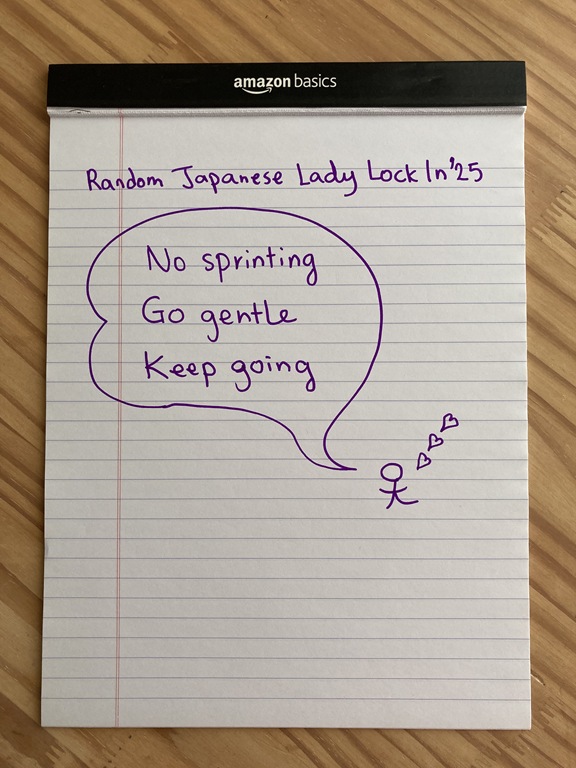 amazon basics
Random Japanese Lady Lock In '25
No sprinting
Go gentle
Keep going